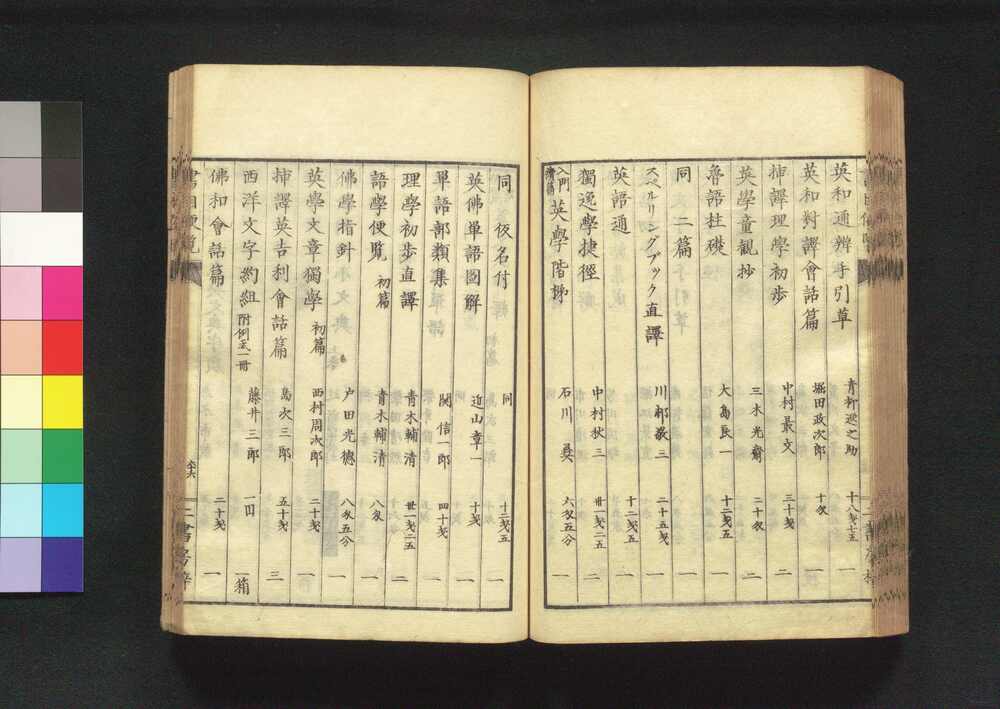 英和通辨手引草 青柳 之助 十八戔七五 一
英和對譯會話篇 堀田政次郎 十匁 一
挿譯理學初歩 中村最文 三十戔 二
英學童觀抄 三木光齋 二十匁 二
魯語柱礎 大島 一 十二戔五 一
同 二篇 一
スペルリングブック直譯 川 三 二十五戔 一
英語通 十二戔五 一
獨逸學捷徑 中村狄三 廿一戔二五 二
入門 英學階梯 石川 六匁五分 一
同 仮名付 同 十二戔五 一
英佛單語圖解 近山章一 十戔 一
單語部類集 関信一郎 四十戔 一
理學初歩直譯 青木輔清 廿一戔二五 二
語學便覧 初篇 青木輔清 八匁 一
佛學指針 戸田光德 八匁五分 一
英學文章獨學 初篇 西村周次郎 二十戔 一
挿譯英吉利會話篇 島次三郎 五十戔 三
西洋文字約組 附例式一冊 藤井三郎 一円 一箱
佛和會話篇 二十戔 一
書目便覧 六 二書房梓